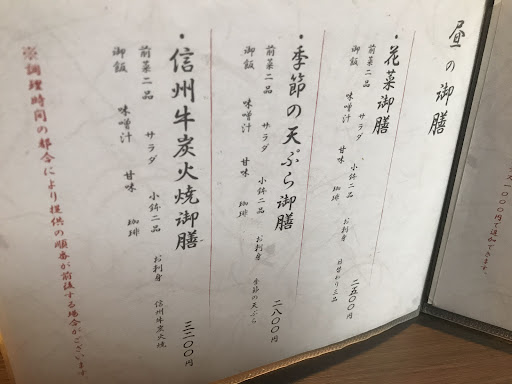 昼の御膳
・花菜御膳
前菜二品 サラダ 小鉢二品 お刺身 日替わり二品
御飯 味噌汁 甘味 珈琲
二五〇〇円
・季節の天ぷら御膳
前菜二品 サラダ 小鉢二品 お刺身 季節の天ぷら
御飯 味噌汁 甘味 珈琲
二八〇〇円
・信州牛炭火焼御膳
前菜二品 サラダ 小鉢二品 お刺身 信州牛炭火焼
御飯 味噌汁 甘味 珈琲
三二〇〇円
※調理時間の都合により提供の順番が前後する場合がございます
1000円で追加できます。